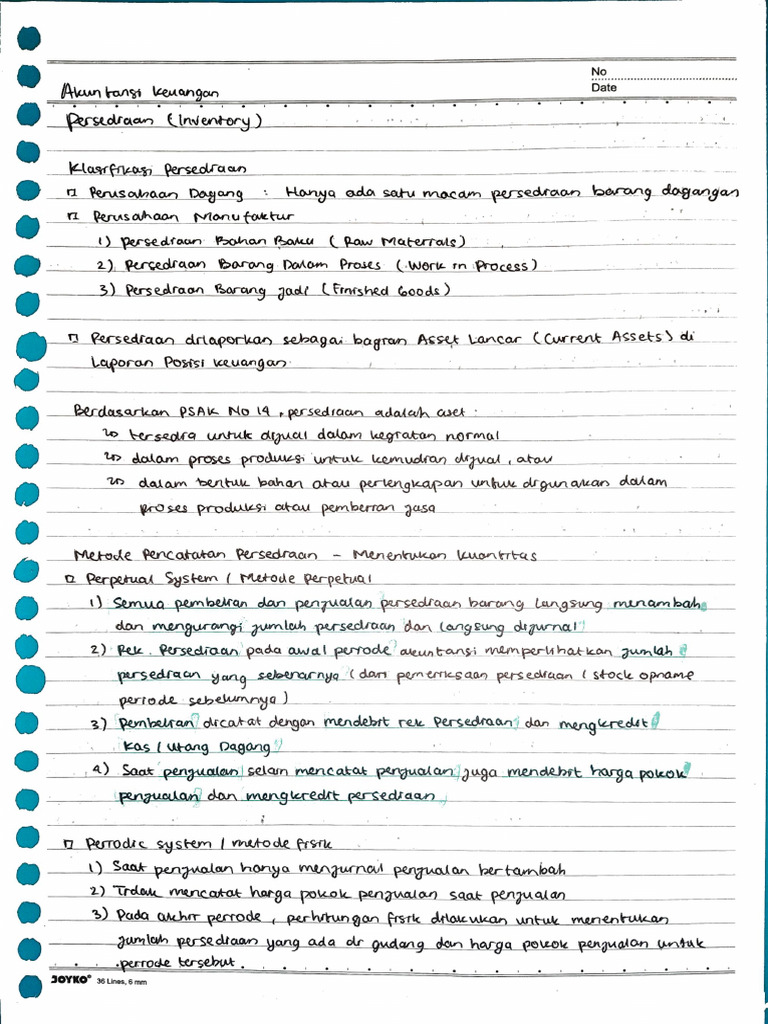 No
Date
Akuntansi Keuangan
Persediaan (Inventory)
Klasifikasi Persediaan
Perusahaan Dagang : Hanya ada satu macam persediaan barang dagangan
Perusahaan Manufaktur
1) Persediaan Bahan Baku (Raw Materials)
2) Persediaan Barang Dalam Proses (Work in Process)
3) Persediaan Barang Jadi (Finished Goods)
Persediaan dilaporkan sebagai bagian Asset Lancar (Current Assets) di
Laporan Posisi Keuangan.
Berdasarkan PSAK No 14, persediaan adalah aset :
tersedia untuk dijual dalam kegiatan normal
dalam proses produksi untuk kemudian dijual, atau
dalam bentuk bahan atau perlengkapan untuk digunakan dalam
proses produksi atau pemberian jasa
Metode Pencatatan Persediaan - Menentukan Kuantitas
Perpetual System / Metode Perpetual
1) Semua pembelian dan penjualan persediaan barang langsung menambah
dan mengurangi jumlah persediaan dan langsung dijurnal
2) Rek. Persediaan pada awal periode akuntansi memperlihatkan jumlah
persediaan yang sebenarnya (dari pemeriksaan persediaan / stock opname
periode sebelumnya)
3) Pembelian dicatat dengan mendebit rek Persediaan dan mengkredit
Kas / Utang Dagang
4) Saat penjualan selain mencatat penjualan juga mendebit harga pokok
penjualan dan mengkredit persediaan
Periodic system / metode fisik
1) Saat penjualan hanya menjurnal penjualan bertambah
2) Tidak mencatat harga pokok penjualan saat penjualan
3) Pada akhir periode, perhitungan fisik dilakukan untuk menentukan
jumlah persediaan yang ada di gudang dan harga pokok penjualan untuk
periode tersebut.
JOYKO® 36 Lines, 6 mm